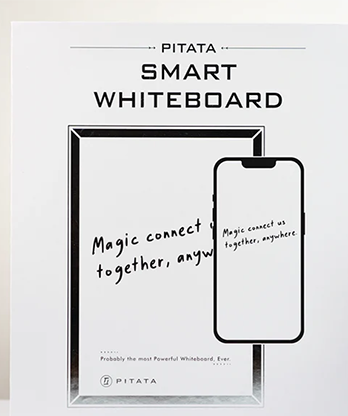 PITATA
SMART
WHITEBOARD
Magic connect
together, anyw
Magic connect us
together, anywhere.
Probably the most Powerful Whiteboard, Ever.
PITATA